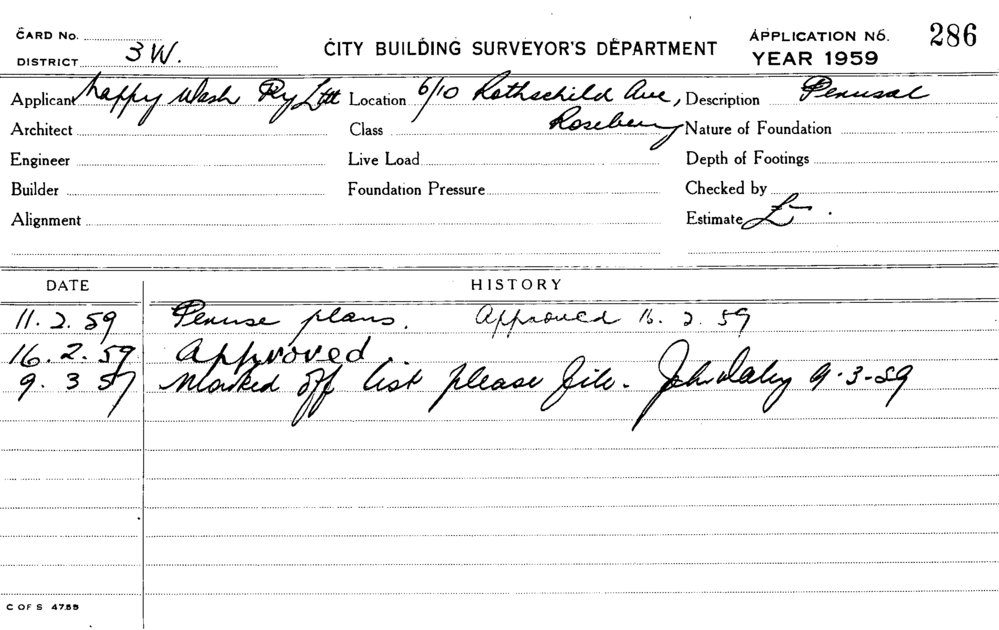 CARD No.
CITY BUILDING SURVEYOR'S DEPARTMENT
APPLICATION No. 286
DISTRICT 3 W.
YEAR 1959
Applicant Happy Wash Pty Ltd Location 6/10 Rothschild Ave, Description Perusal
Architect Class Rosebery Nature of Foundation
Engineer Live Load Depth of Footings
Builder Foundation Pressure Checked by
Alignment Estimate £ —
DATE HISTORY
11.2.59 Peruse plans. Approved 16.2.59
16.2.59 Approved.
9.3.59 Marked off list please file. John Daley 9-3-59
C OF S 47.55